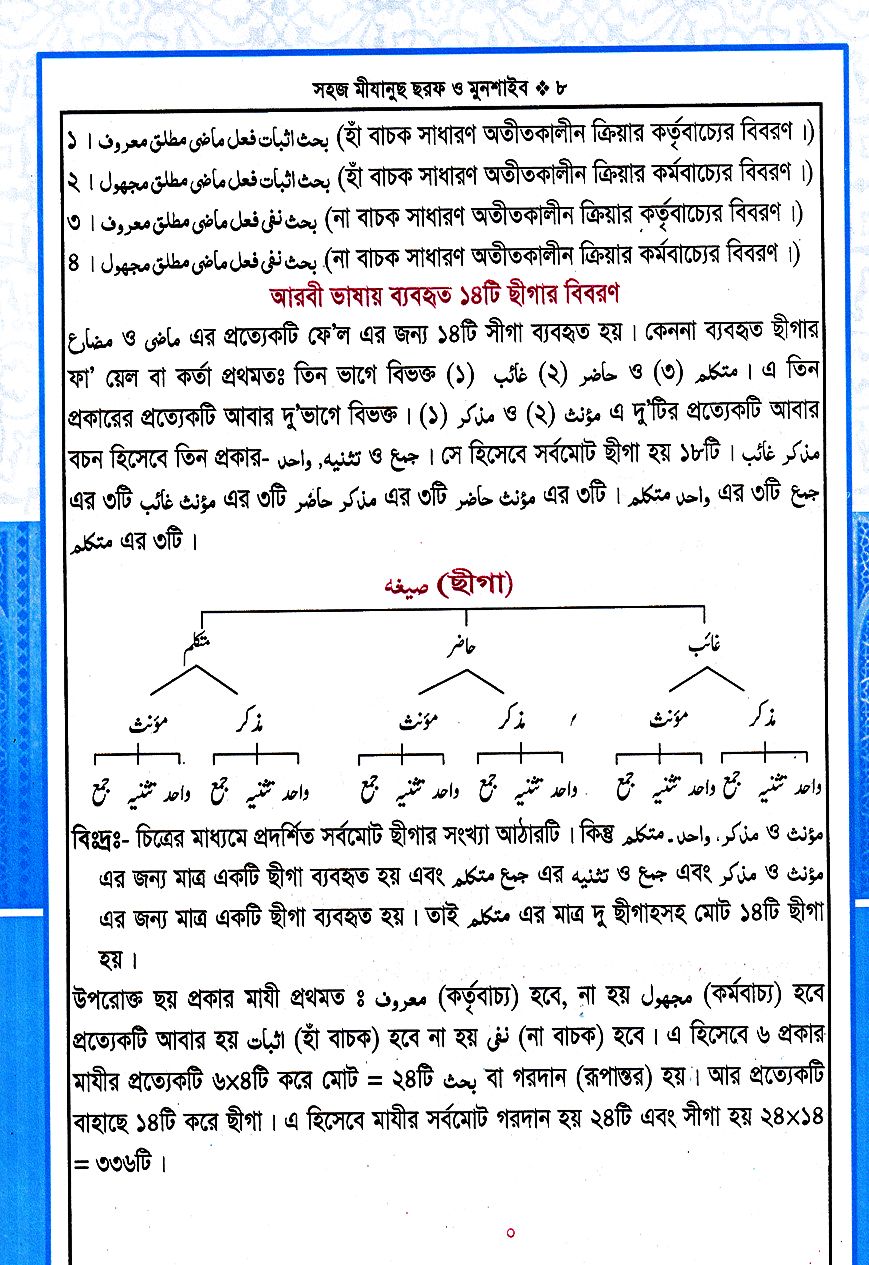 সহজ মীযানুছ ছরফ ও মুনশাইব ❖ ৮
১ । بحث اثبات فعل ماضى مطلق معروف (হাঁ বাচক সাধারণ অতীতকালীন ক্রিয়ার কর্তৃবাচ্যের বিবরণ ।)
২ । بحث اثبات فعل ماضى مطلق مجهول (হাঁ বাচক সাধারণ অতীতকালীন ক্রিয়ার কর্মবাচ্যের বিবরণ ।)
৩ । بحث نفى فعل ماضى مطلق معروف (না বাচক সাধারণ অতীতকালীন ক্রিয়ার কর্তৃবাচ্যের বিবরণ ।)
৪ । بحث نفى فعل ماضى مطلق مجهول (না বাচক সাধারণ অতীতকালীন ক্রিয়ার কর্মবাচ্যের বিবরণ ।)
আরবী ভাষায় ব্যবহৃত ১৪টি ছীগার বিবরণ
مضارع ও ماضى এর প্রত্যেকটি ফে'ল এর জন্য ১৪টি সীগা ব্যবহৃত হয় । কেননা ব্যবহৃত ছীগার
ফা' য়েল বা কর্তা প্রথমতঃ তিন ভাগে বিভক্ত (১) غائب (২) حاضر ও (৩) متكلم । এ তিন
প্রকারের প্রত্যেকটি আবার দু'ভাগে বিভক্ত । (১) مذكر ও (২) مؤنث এ দু'টির প্রত্যেকটি আবার
বচন হিসেবে তিন প্রকার- واحد, تثنيه ও جمع । সে হিসেবে সর্বমোট ছীগা হয় ১৮টি । مذكر غائب
এর ৩টি مؤنث غائب এর ৩টি مذكر حاضر এর ৩টি مؤنث حاضر এর ৩টি । واحد متكلم এর ৩টি جمع
متكلم এর ৩টি ।
صيغه (ছীগা)
متكلم حاضر غائب
مؤنث مذكر مؤنث مذكر مؤنث مذكر
جمع تثنيه واحد جمع تثنيه واحد جمع تثنيه واحد جمع تثنيه واحد جمع تثنيه واحد جمع تثنيه واحد
বিঃদ্রঃ- চিত্রের মাধ্যমে প্রদর্শিত সর্বমোট ছীগার সংখ্যা আঠারটি । কিন্তু واحد- متكلم, مذكر ও مؤنث
এর জন্য মাত্র একটি ছীগা ব্যবহৃত হয় এবং جمع متكلم এর تثنيه ও جمع এবং مذكر ও مؤنث
এর জন্য মাত্র একটি ছীগা ব্যবহৃত হয় । তাই متكلم এর মাত্র দু ছীগাহসহ মোট ১৪টি ছীগা
হয় ।
উপরোক্ত ছয় প্রকার মাযী প্রথমত ঃ معروف (কর্তৃবাচ্য) হবে, না হয় مجهول (কর্মবাচ্য) হবে
প্রত্যেকটি আবার হয় اثبات (হাঁ বাচক) হবে না হয় نفى (না বাচক) হবে । এ হিসেবে ৬ প্রকার
মাযীর প্রত্যেকটি ৬×৪টি করে মোট = ২৪টি بحث বা গরদান (রূপান্তর) হয় । আর প্রত্যেকটি
বাহাছে ১৪টি করে ছীগা । এ হিসেবে মাযীর সর্বমোট গরদান হয় ২৪টি এবং সীগা হয় ২৪×১৪
= ৩৩৬টি ।